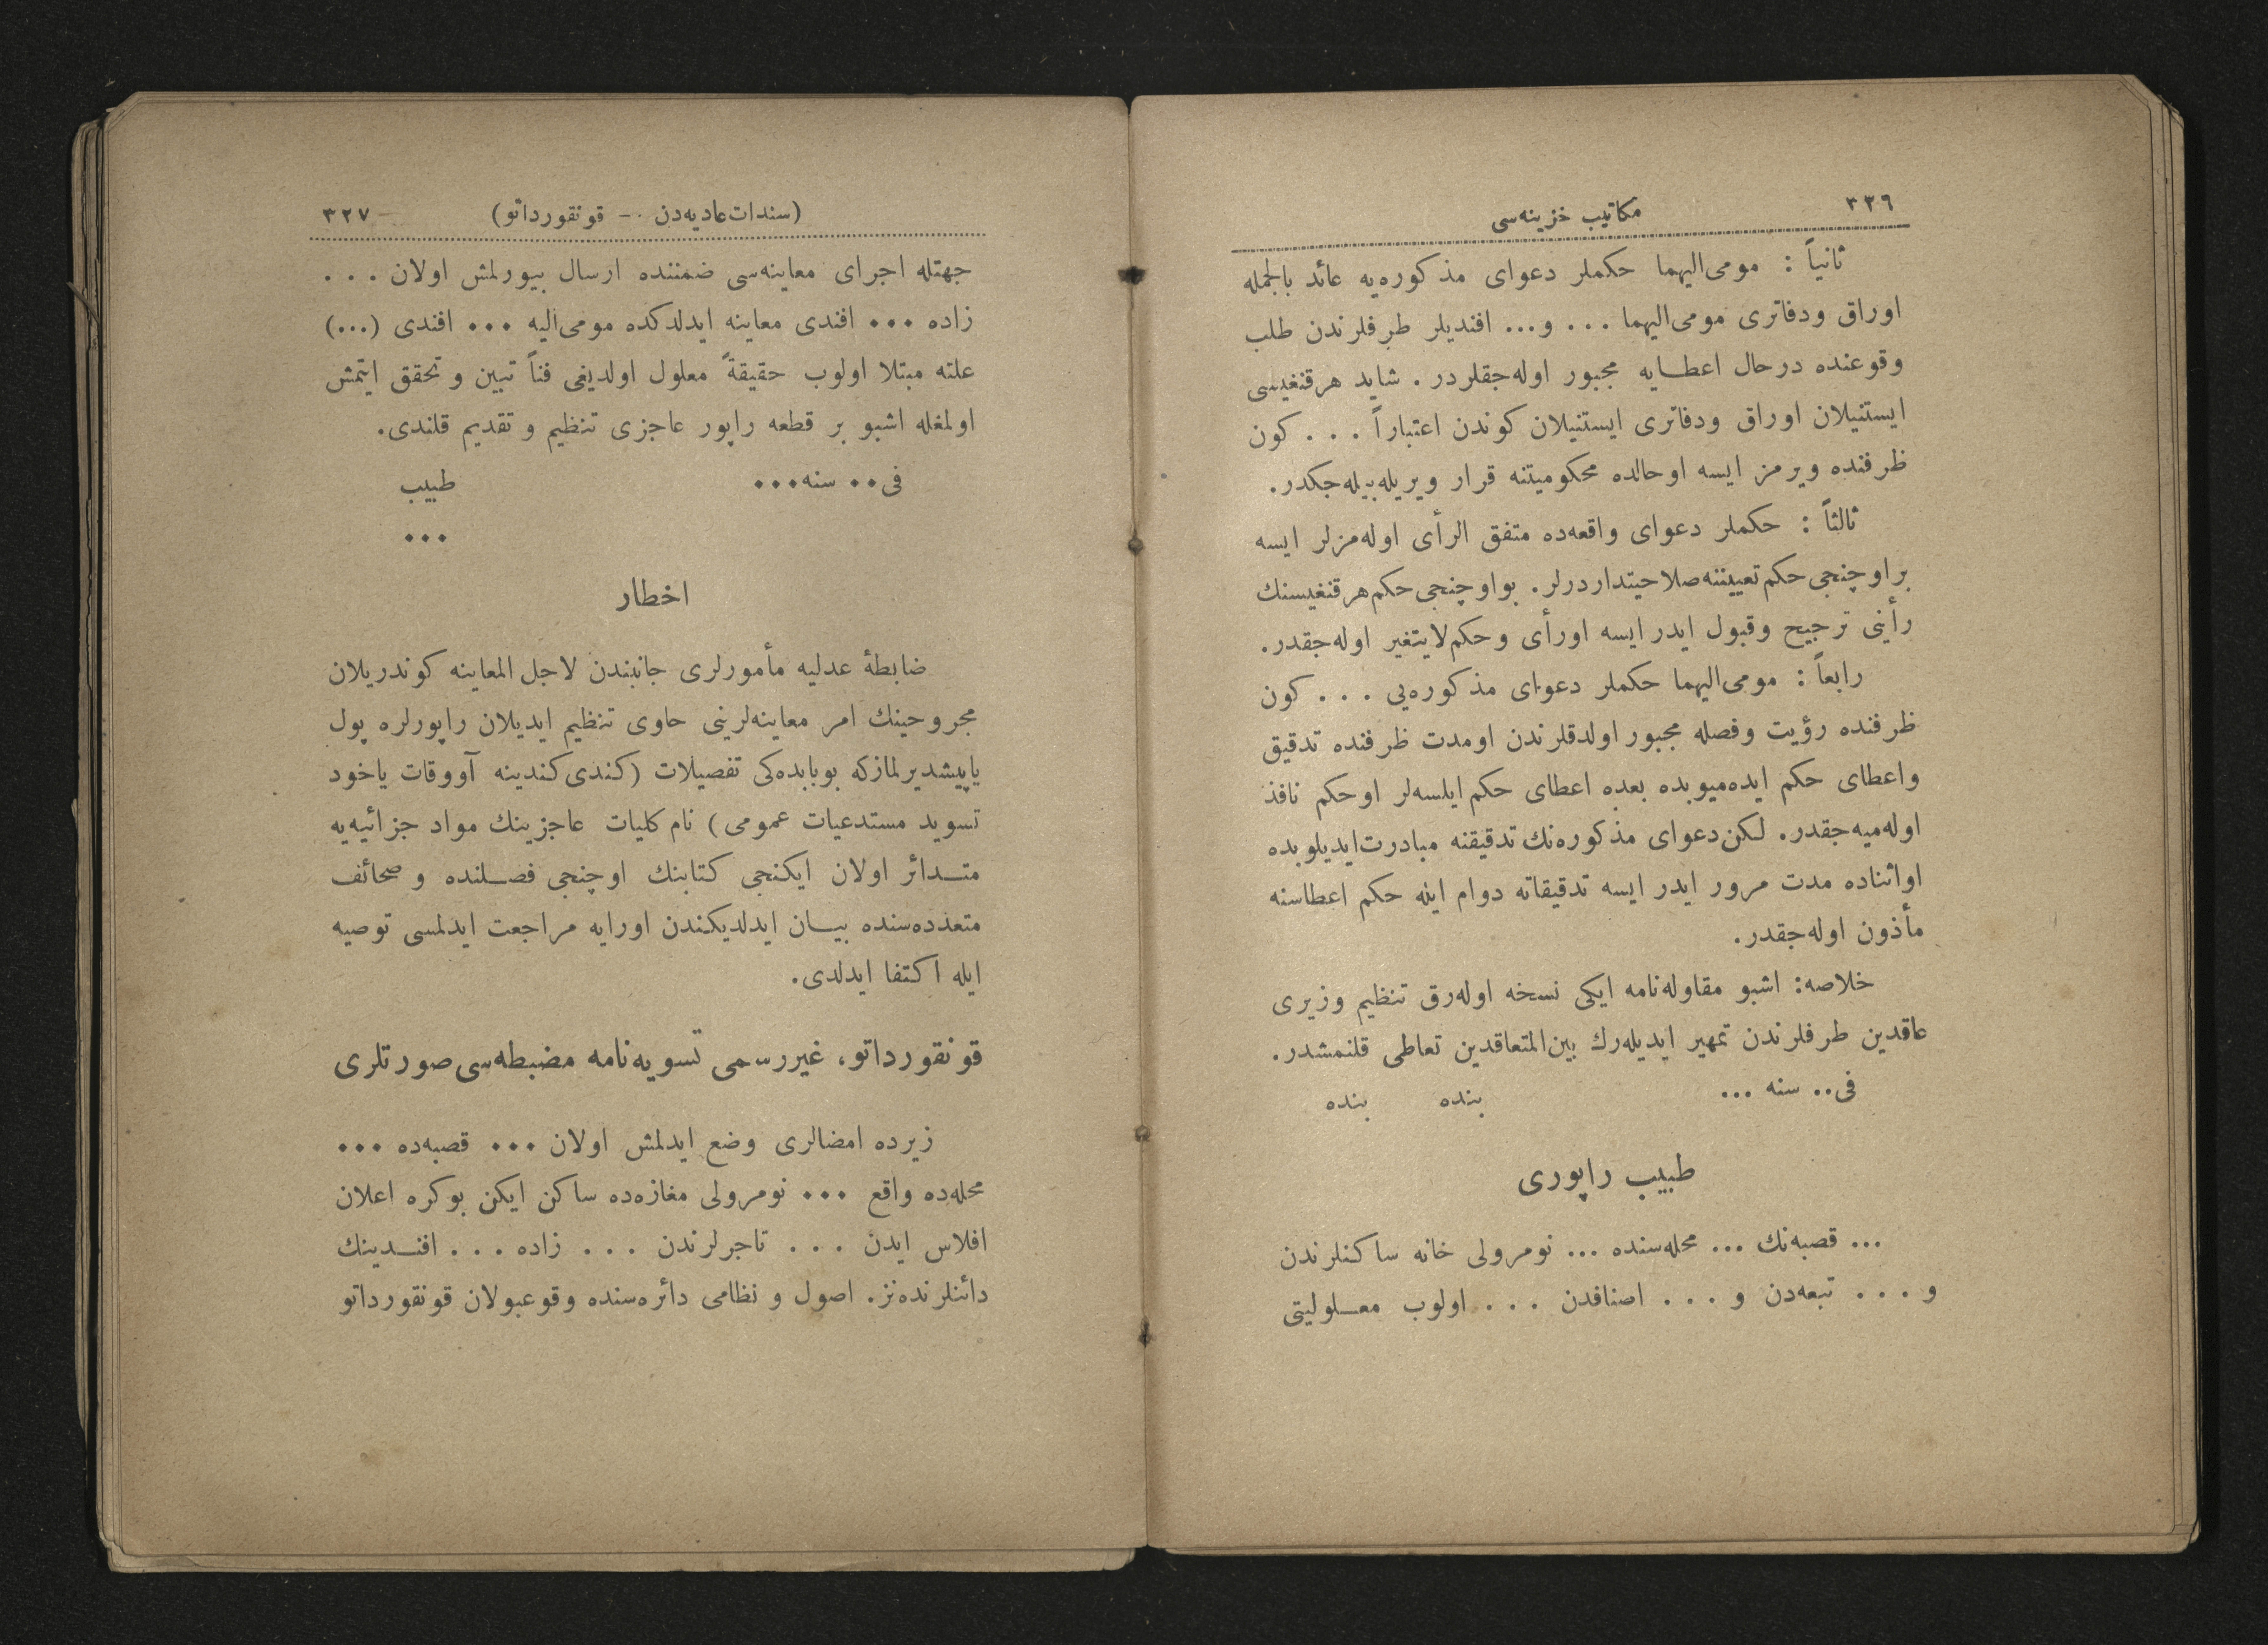 ٣٣٦ مكاتيب خزينه‌سى
ثانياً : مومى‌اليهما حكملر دعواى مذكوره‌يه عائد بالجمله
اوراق ودفاترى مومى‌اليهما . . . و... افنديلر طرفلرندن طلب
وقوعنده درحال اعطايه مجبور اوله‌جقلردر . شايد هرقنغيسى
ايستنيلان اوراق ودفاترى ايستنيلان كوندن اعتباراً . . . كون
ظرفنده ويرمز ايسه اوحالده محكوميتنه قرار ويريله‌بيله‌جكدر .
ثالثاً : حكملر دعواى واقعه‌ده متفق الرأى اوله‌مزلر ايسه
براوچنجى حكم تعييننه صلاحيتداردرلر . بواوچنجى حكم هرقنغيسنك
رأينى ترجيح وقبول ايدر ايسه اورأى وحكم لايتغير اوله‌جقدر .
رابعاً : مومى‌اليهما حكملر دعواى مذكوره‌يى . . . كون
ظرفنده رؤيت وفصله مجبور اولدقلرندن اومدت ظرفنده تدقيق
واعطاى حكم ايده‌ميوبده بعده اعطاى حكم ايلسه‌لر اوحكم نافذ
اوله‌ميه‌جقدر . لكن دعواى مذكوره‌نك تدقيقنه مبادرت ايديلوبده
اواثناده مدت مرور ايدر ايسه تدقيقاته دوام ايله حكم اعطاسنه
مأذون اوله‌جقدر .
خلاصه : اشبو مقاوله‌نامه ايكى نسخه اوله‌رق تنظيم وزيرى
عاقدين طرفلرندن تمهير ايديله‌رك بين‌المتعاقدين تعاطى قلنمشدر .
فى.. سنه ... بنده بنده
طبيب راپورى
... قصبه‌نك ... محله‌سنده ... نومرولى خانه ساكنلرندن
و . . . تبعه‌دن و . . . اصنافدن . . . اولوب معلوليتى
(سندات عاديه‌دن — قونقورداتو) ٣٢٧
جهتله اجراى معاينه‌سى ضمننده ارسال بيورلمش اولان . . .
زاده ... افندى معاينه ايدلدكده مومى‌اليه ... افندى (...)
علته مبتلا اولوب حقيقةً معلول اولديغى فناً تبين و تحقق ايتمش
اولمغله اشبو بر قطعه راپور عاجزى تنظيم و تقديم قلندى .
فى.. سنه... طبيب
...
اخطار
ضابطهٔ عدليه مأمورلرى جانبندن لاجل المعاينه كوندريلان
مجروحينك امر معاينه‌لرينى حاوى تنظيم ايديلان راپورلره پول
ياپيشديرلمازكه بوبابده‌كى تفصيلات (كندى كندينه آووقات ياخود
تسويد مستدعيات عمومى) نام كليات عاجزينك مواد جزائيه‌يه
متدائر اولان ايكنجى كتابنك اوچنجى فصلنده و صحائف
متعدده‌سنده بيان ايدلديكندن اورايه مراجعت ايدلمسى توصيه
ايله اكتفا ايدلدى .
قونقورداتو، غيررسمى تسويه‌نامه مضبطه‌سى صورتلرى
زيرده امضالرى وضع ايدلمش اولان ... قصبه‌ده ...
محله‌ده واقع ... نومرولى مغازه‌ده ساكن ايكن بوكره اعلان
افلاس ايدن . . . تاجرلرندن . . . زاده . . . افندينك
دائنلرنده‌نز . اصول و نظامى دائره‌سنده وقوعبولان قونقورداتو